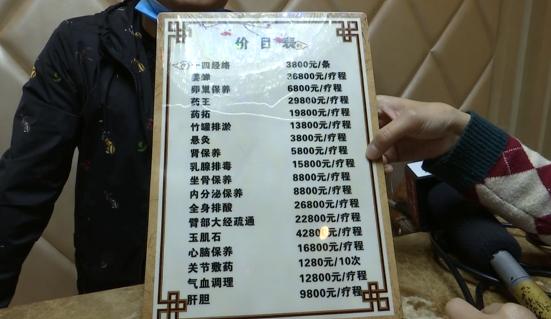 价目表
十四经络 3800元/条
姜蝉 36800元/疗程
卵巢保养 6800元/疗程
药王 29800元/疗程
药拓 19800元/疗程
竹罐排淤 13800元/疗程
悬灸 3800元/疗程
肾保养 5800元/疗程
乳腺排毒 15800元/疗程
坐骨保养 8800元/疗程
内分泌保养 8800元/疗程
全身排酸 26800元/疗程
臂部大经疏通 22800元/疗程
玉肌石 42800元/疗程
心脑保养 16800元/疗程
关节敷药 1280元/10次
气血调理 12800元/疗程
肝胆 9800元/疗程